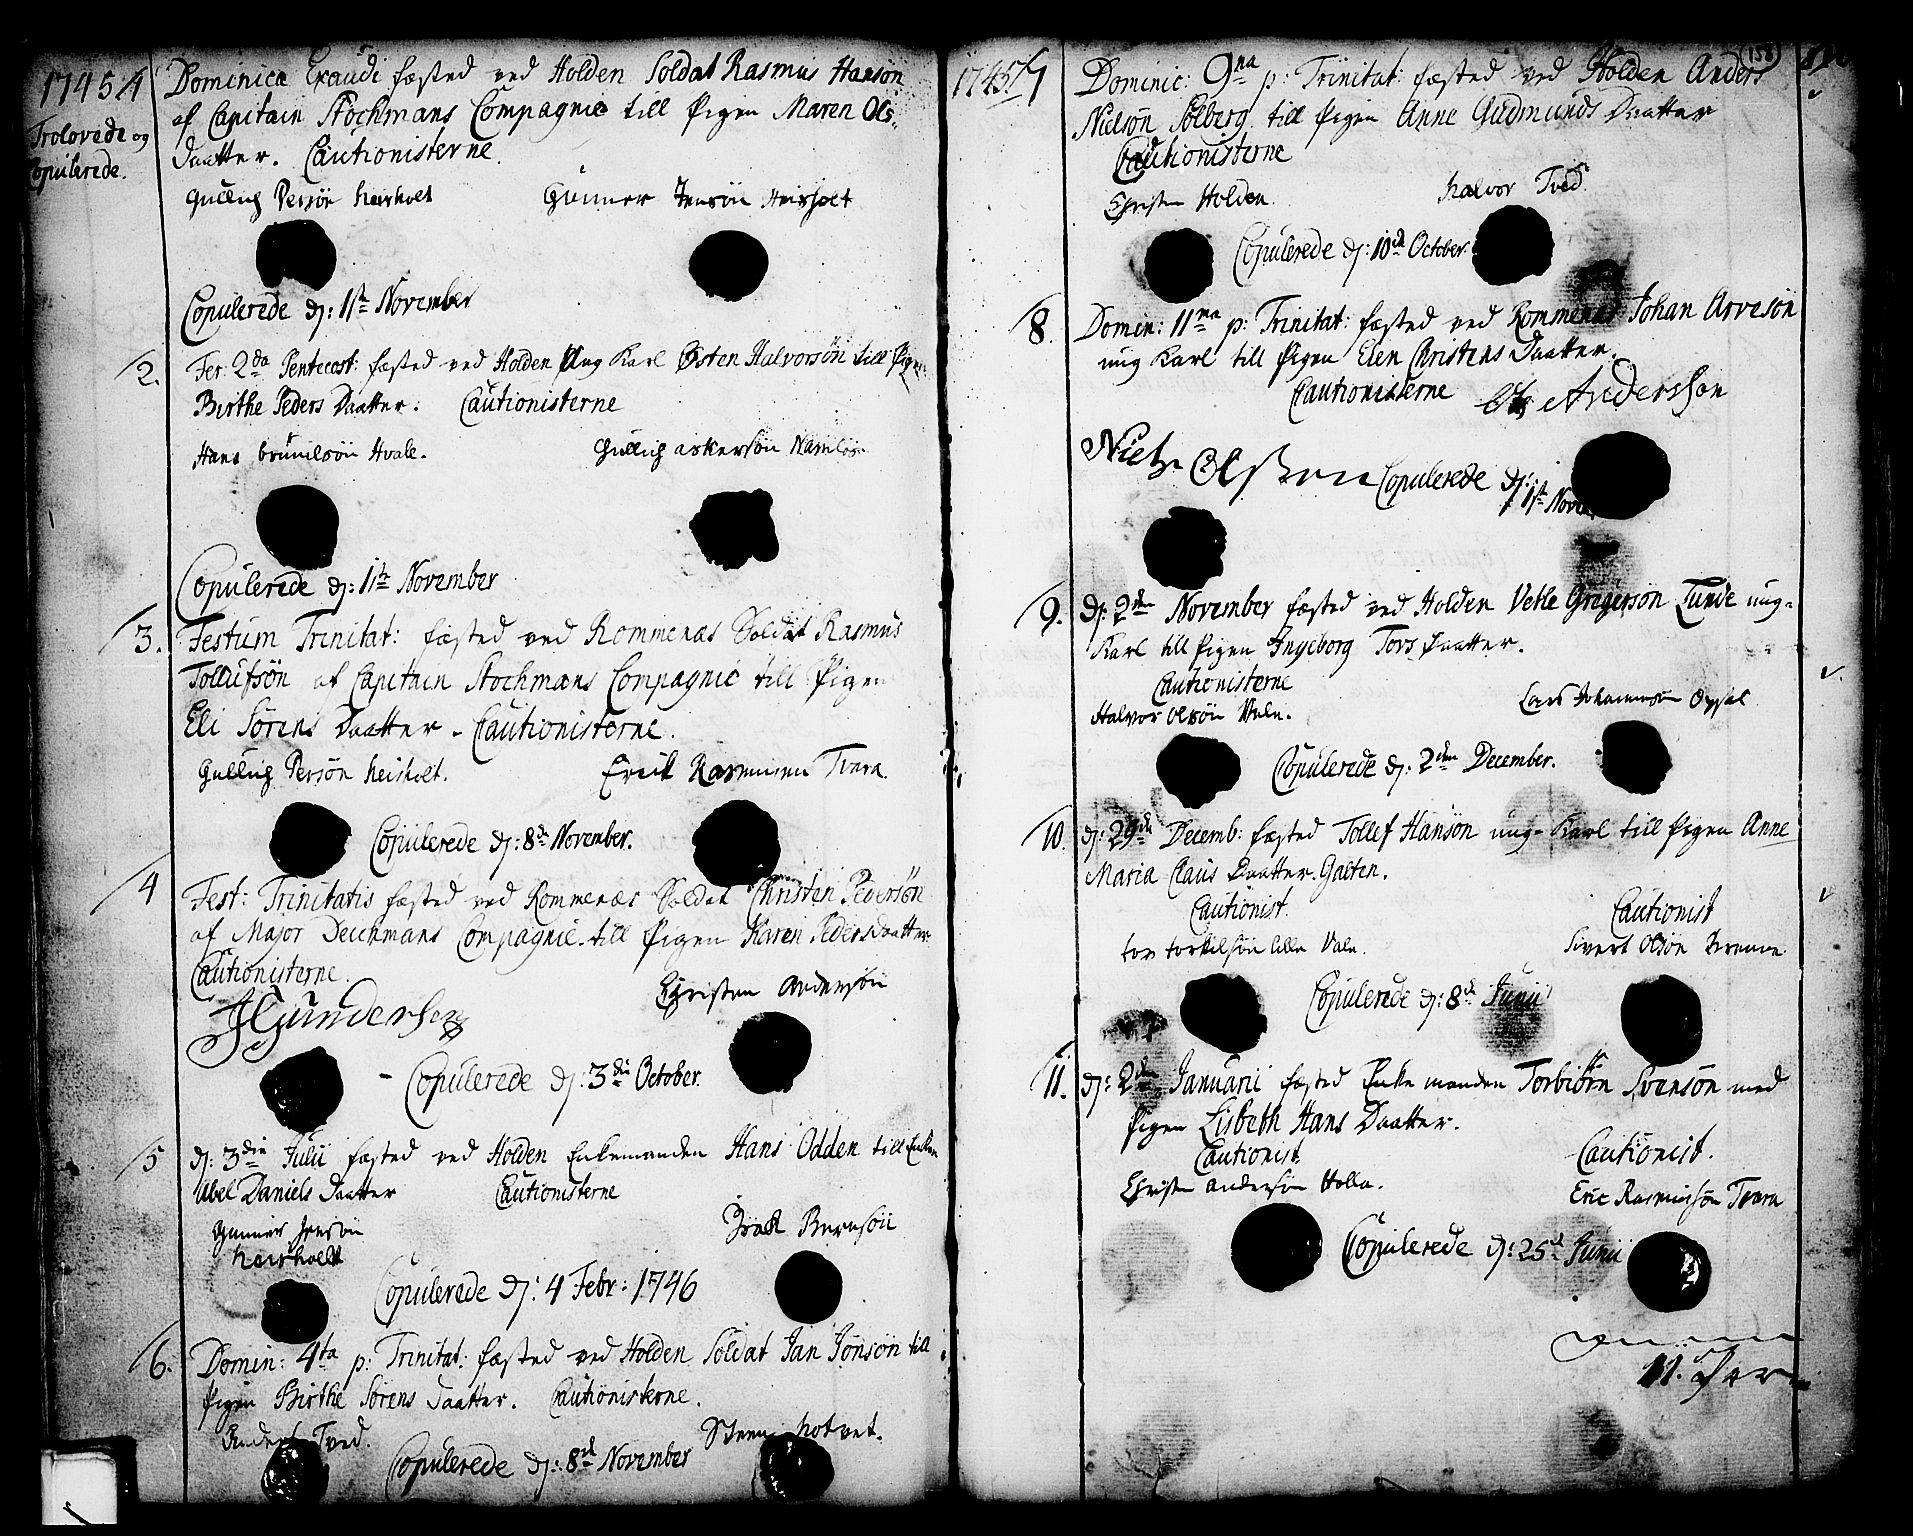 1745
Trolovede og
Copulerede.
1 Dominica Exaudi fæsted ved Holden Soldat Rasmus Hansøn
af Capitain Stochmans Compagnie till Pigen Maren Ols-
Daatter. Cautionisterne
Gullich Persøn heisholt Gunner Jensøn Heisholt
Copulerede d: 1ste November
2. Fer: 2da Pentecost: fæsted ved Holden Ung Karl Østen Halvorsøn till Pigen
Birthe Peders Daatter: Cautionisterne
Hans brunilsøn Hvale. Gullich askersøn
Copulerede d: 1ste November
3. Festum Trinitat: fæsted ved Rommenæs Soldat Rasmus
Tollufsøn af Capitain Stochmans Compagnie till Pigen
Eli Sørens Daatter - Cautionisterne.
Gullich Persøn heisholt. Erik Rasmusen Tvara
Copulerede d: 8de November.
4 Fest: Trinitatis fæsted ved Rommenæs Soldat Christen Pedersøn
af Major Deichmans Compagnie till Pigen Karen Peders Daatter
Cautionisterne.
JGundersen Christen Andersøn
- Copulerede d: 3die October.
5 d: 3die Julii fæsted ved Holden Enkemanden Hans Odden till Enken
Abel Daniels Daatter Cautionisterne
Gunner Jensøn Isak Bernsøn
heisholt
Copulerede d: 4 Febr: 1746
6. Domin: 4ta p: Trinitat: fæsted ved Holden Soldat Jan Jonsøn till
Pigen Birthe Sørens Daatter. Cautionisterne.
Anders Tved. Steen hotvet.
Copulerede d: 8de November
158
1745
7 Dominic: 9na p: Trinitat: fæsted ved Holden Anders
Nielsøn Solberg till Pigen Anne Gudmunds Daatter
Cautionisterne
Christen Holden. halvor Tved.
Copulerede d: 10de October.
8. Domin: 11ma p: Trinitat: fæsted ved Rommenæs Johan Arvesøn
ung Karl till Pigen Elen Christens Daatter.
Cautionisterne Anderssøn
Niels Olssen Copulerede d:
1ste Novem
9. d: 2den November fæsted ved Holden Vetle Gregersøn Tunde ung-
Karl till Pigen Ingeborg Tors Daatter.
Cautionisterne
Halvor Olsøn Vala. Lars Johannesøn Opsal
Copulerede d: 2den December.
10. d: 29de Decemb: fæsted Tollef Hansøn ung-Karl till Pigen Anne
Maria Claus Daatter Galten.
Cautionist. Cautionist
tor torkilsøn lille Vala. Sivert Olsøn
Copulerede d: 8de Junii
11. d: 2den Januarii fæsted Enke manden Torbiörn Svensøn med
Pigen Lisbeth Hans Daatter.
Cautionist. Cautionist.
Christen Andersøn Holla. Eric Rasmusøn Tvara
Copulerede d: 25de Junii
11. Par